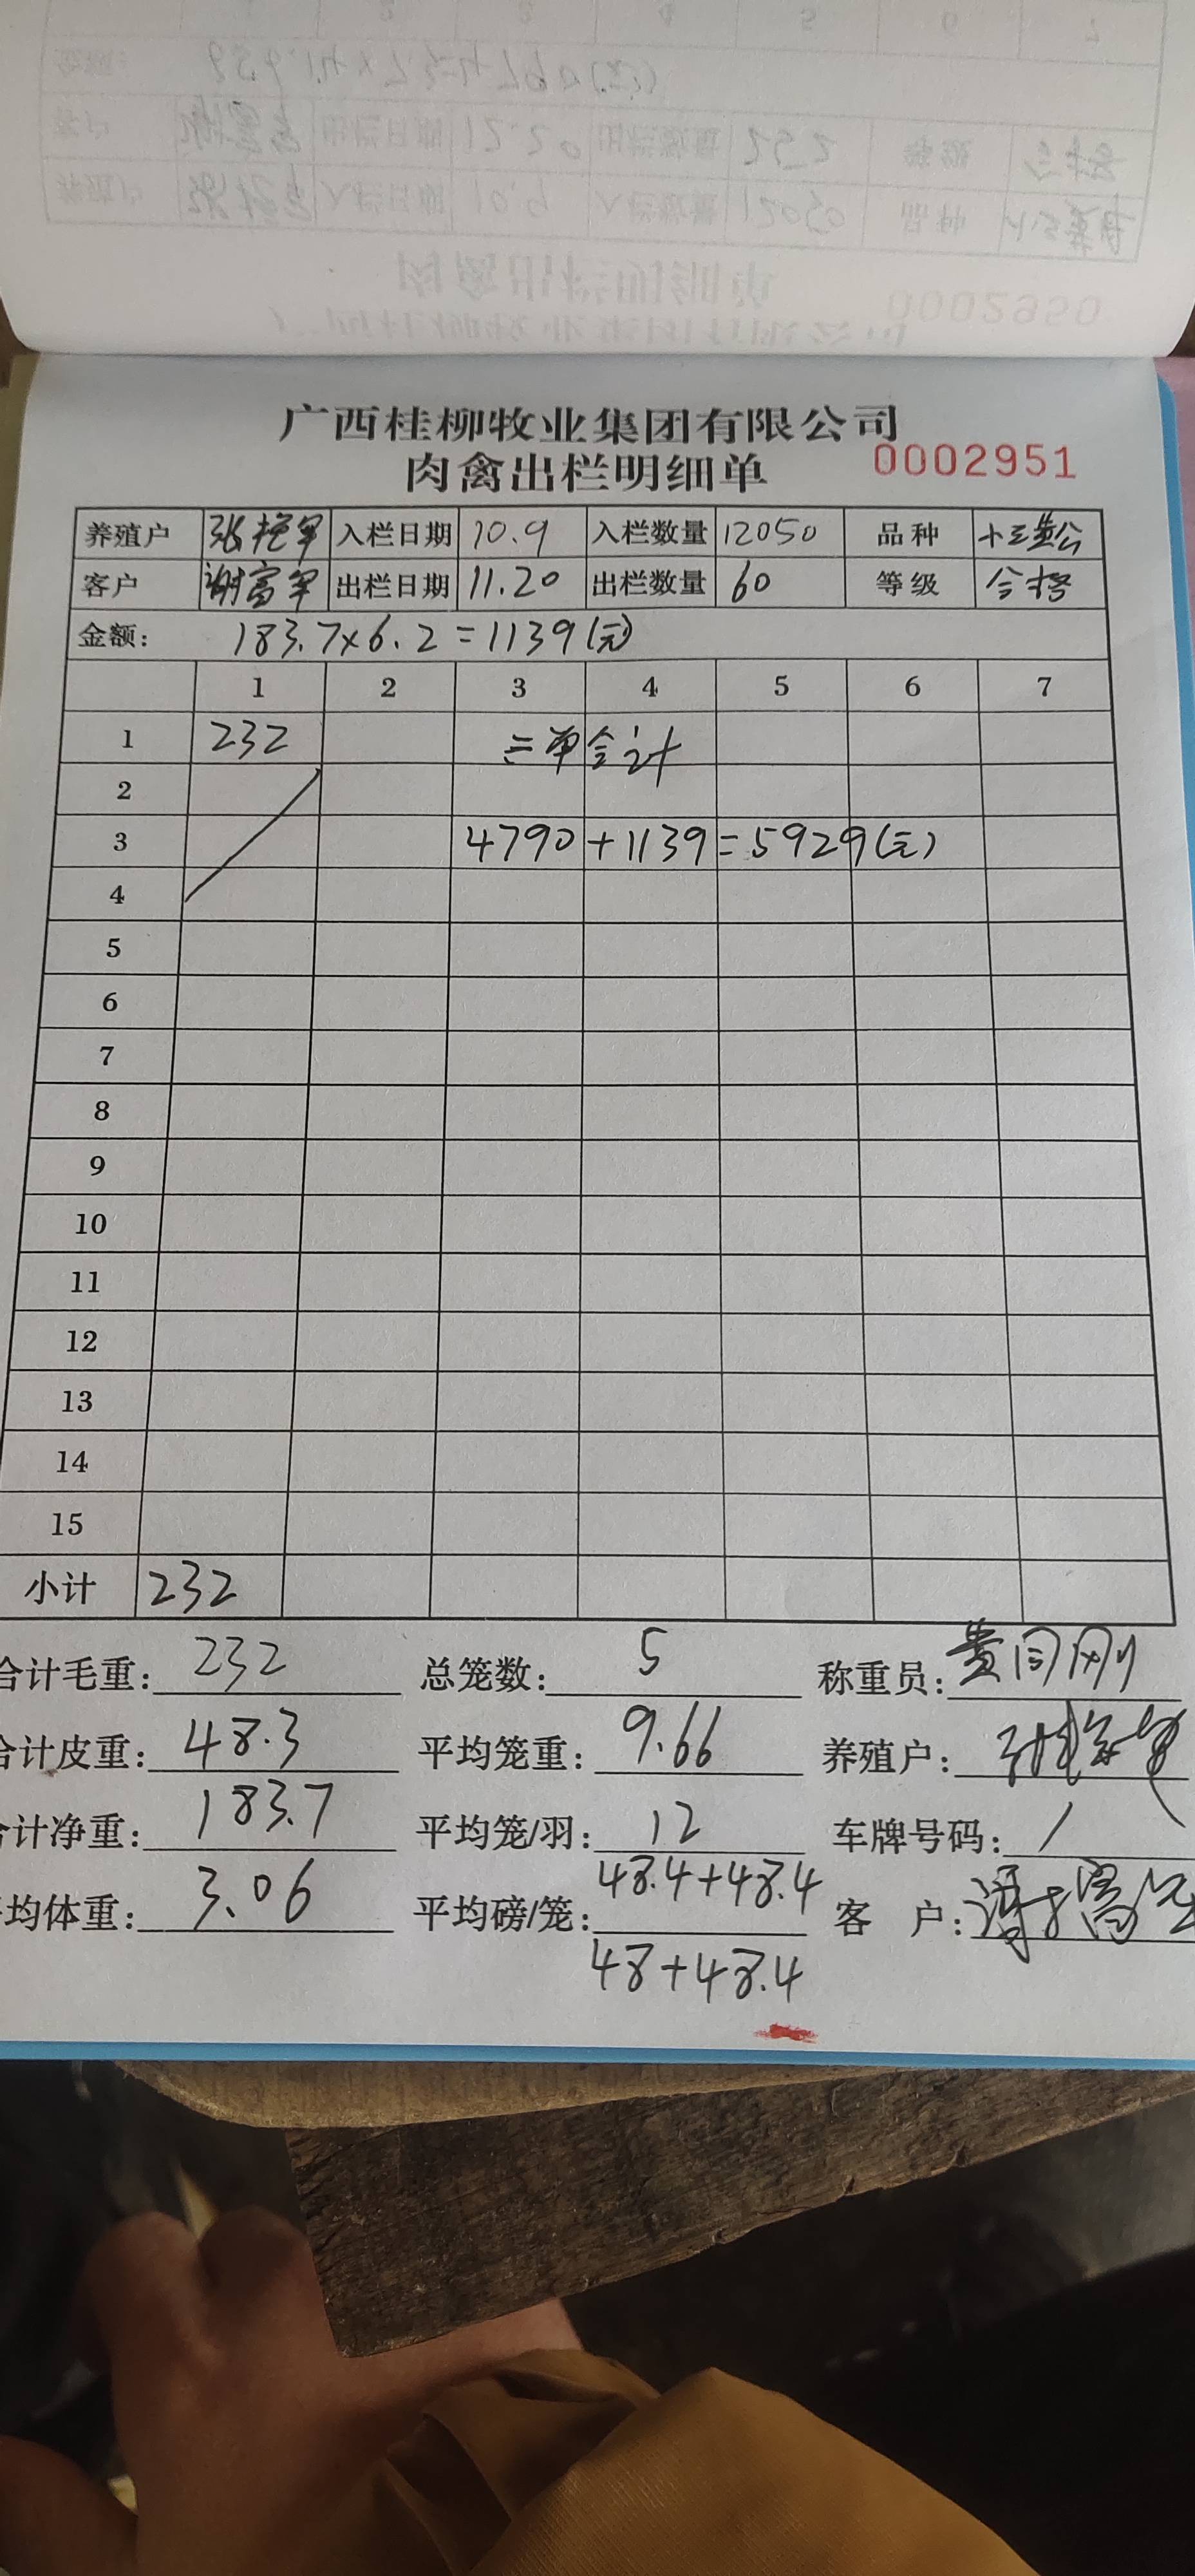 0002950
广西桂柳牧业集团有限公司
肉禽出栏明细单 0002951
养殖户 张艳军 入栏日期 10.9 入栏数量 12050 品种 小三黄公
客户 谢富军 出栏日期 11.20 出栏数量 60 等级 合格
金额: 183.7×6.2=1139(元)
1 2 3 4 5 6 7
1 232 二单合计
2
3 4790+1139=5929(元)
4
5
6
7
8
9
10
11
12
13
14
15
小计 232
合计毛重: 232 总笼数: 5 称重员:
合计皮重: 48.3 平均笼重: 9.66 养殖户:
计净重: 183.7 平均笼/羽: 12 车牌号码: /
均体重: 3.06 平均磅/笼: 48.4+48.4 客 户:
48+48.4